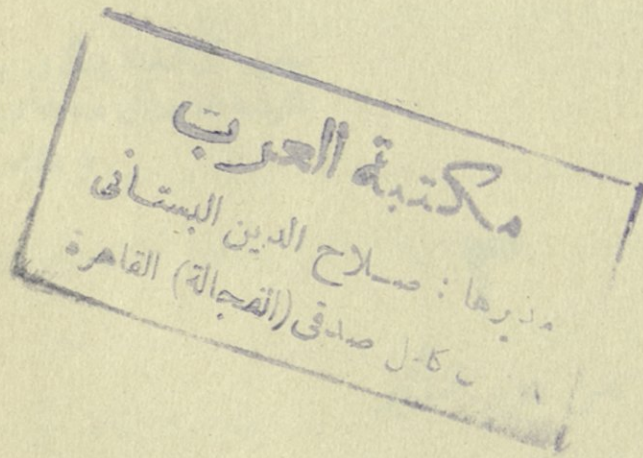 مكتبة العرب
مديرها : صلاح الدين البستانى
كامل صدقى (الفجالة) القاهرة